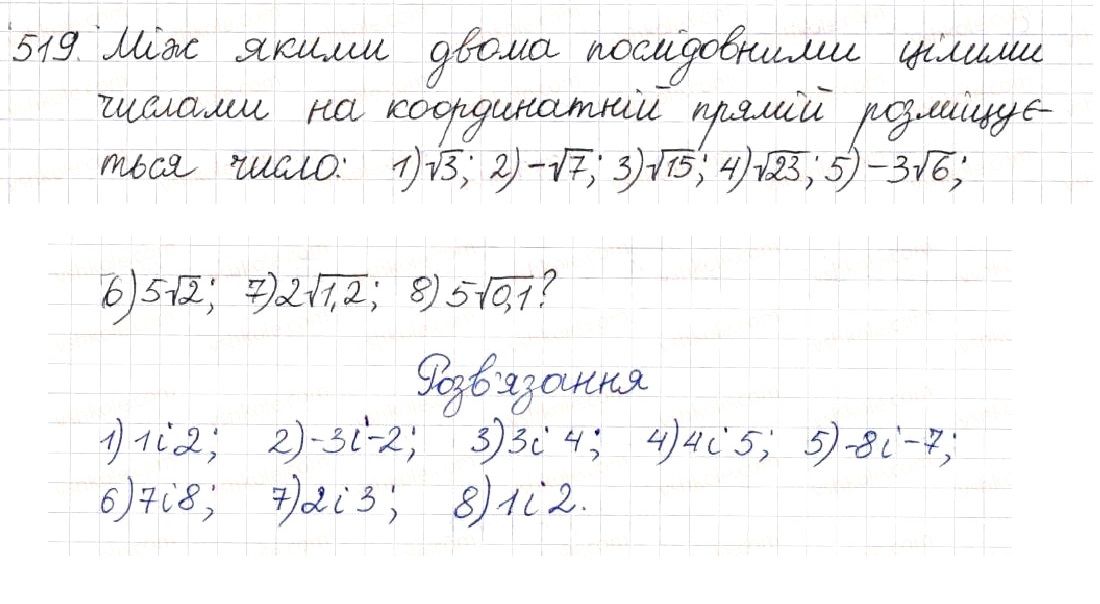 519. Між якими двома послідовними цілими
числами на координатній прямій розміщує-
ться число: 1) √3; 2) -√7; 3) √15; 4) √23; 5) -3√6;
6) 5√2; 7) 2√1,2; 8) 5√0,1?
Розв'язання
1) 1 і 2; 2) -3 і -2; 3) 3 і 4; 4) 4 і 5; 5) -8 і -7;
6) 7 і 8; 7) 2 і 3; 8) 1 і 2.